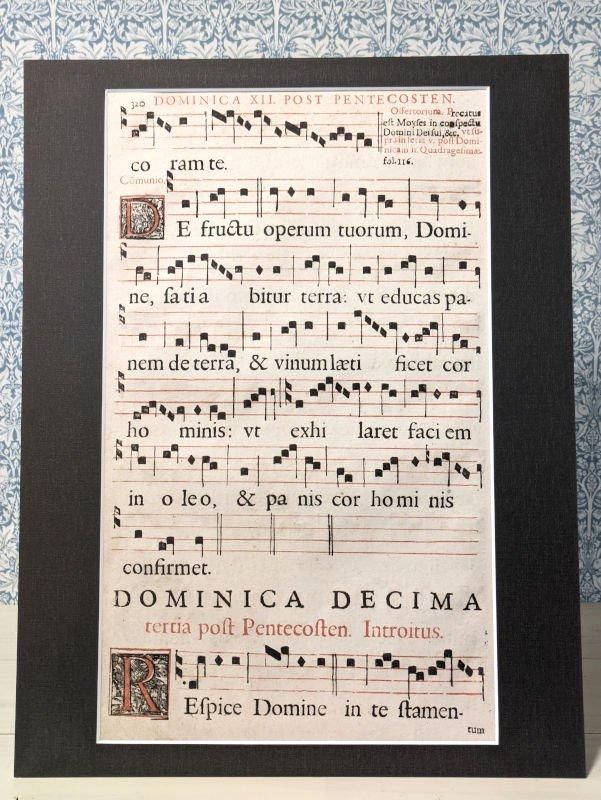 320 DOMINICA XII. POST PENTECOSTEN.
Offertorium. Precatus
est Moyses in conspectu
Domini Dei sui, &c. vt su-
pra in feria v. post Domi-
nicam II. Quadragesimæ
fol. 116.
co ram te.
Cōmunio.
DE fructu operum tuorum, Domi-
ne, satia bitur terra: vt educas pa-
nem de terra, & vinum læti ficet cor
ho minis: vt exhi laret faciem
in oleo, & pa nis cor homi nis
confirmet.
DOMINICA DECIMA
tertia post Pentecosten. Introitus.
REspice Domine in te stamen-
tum